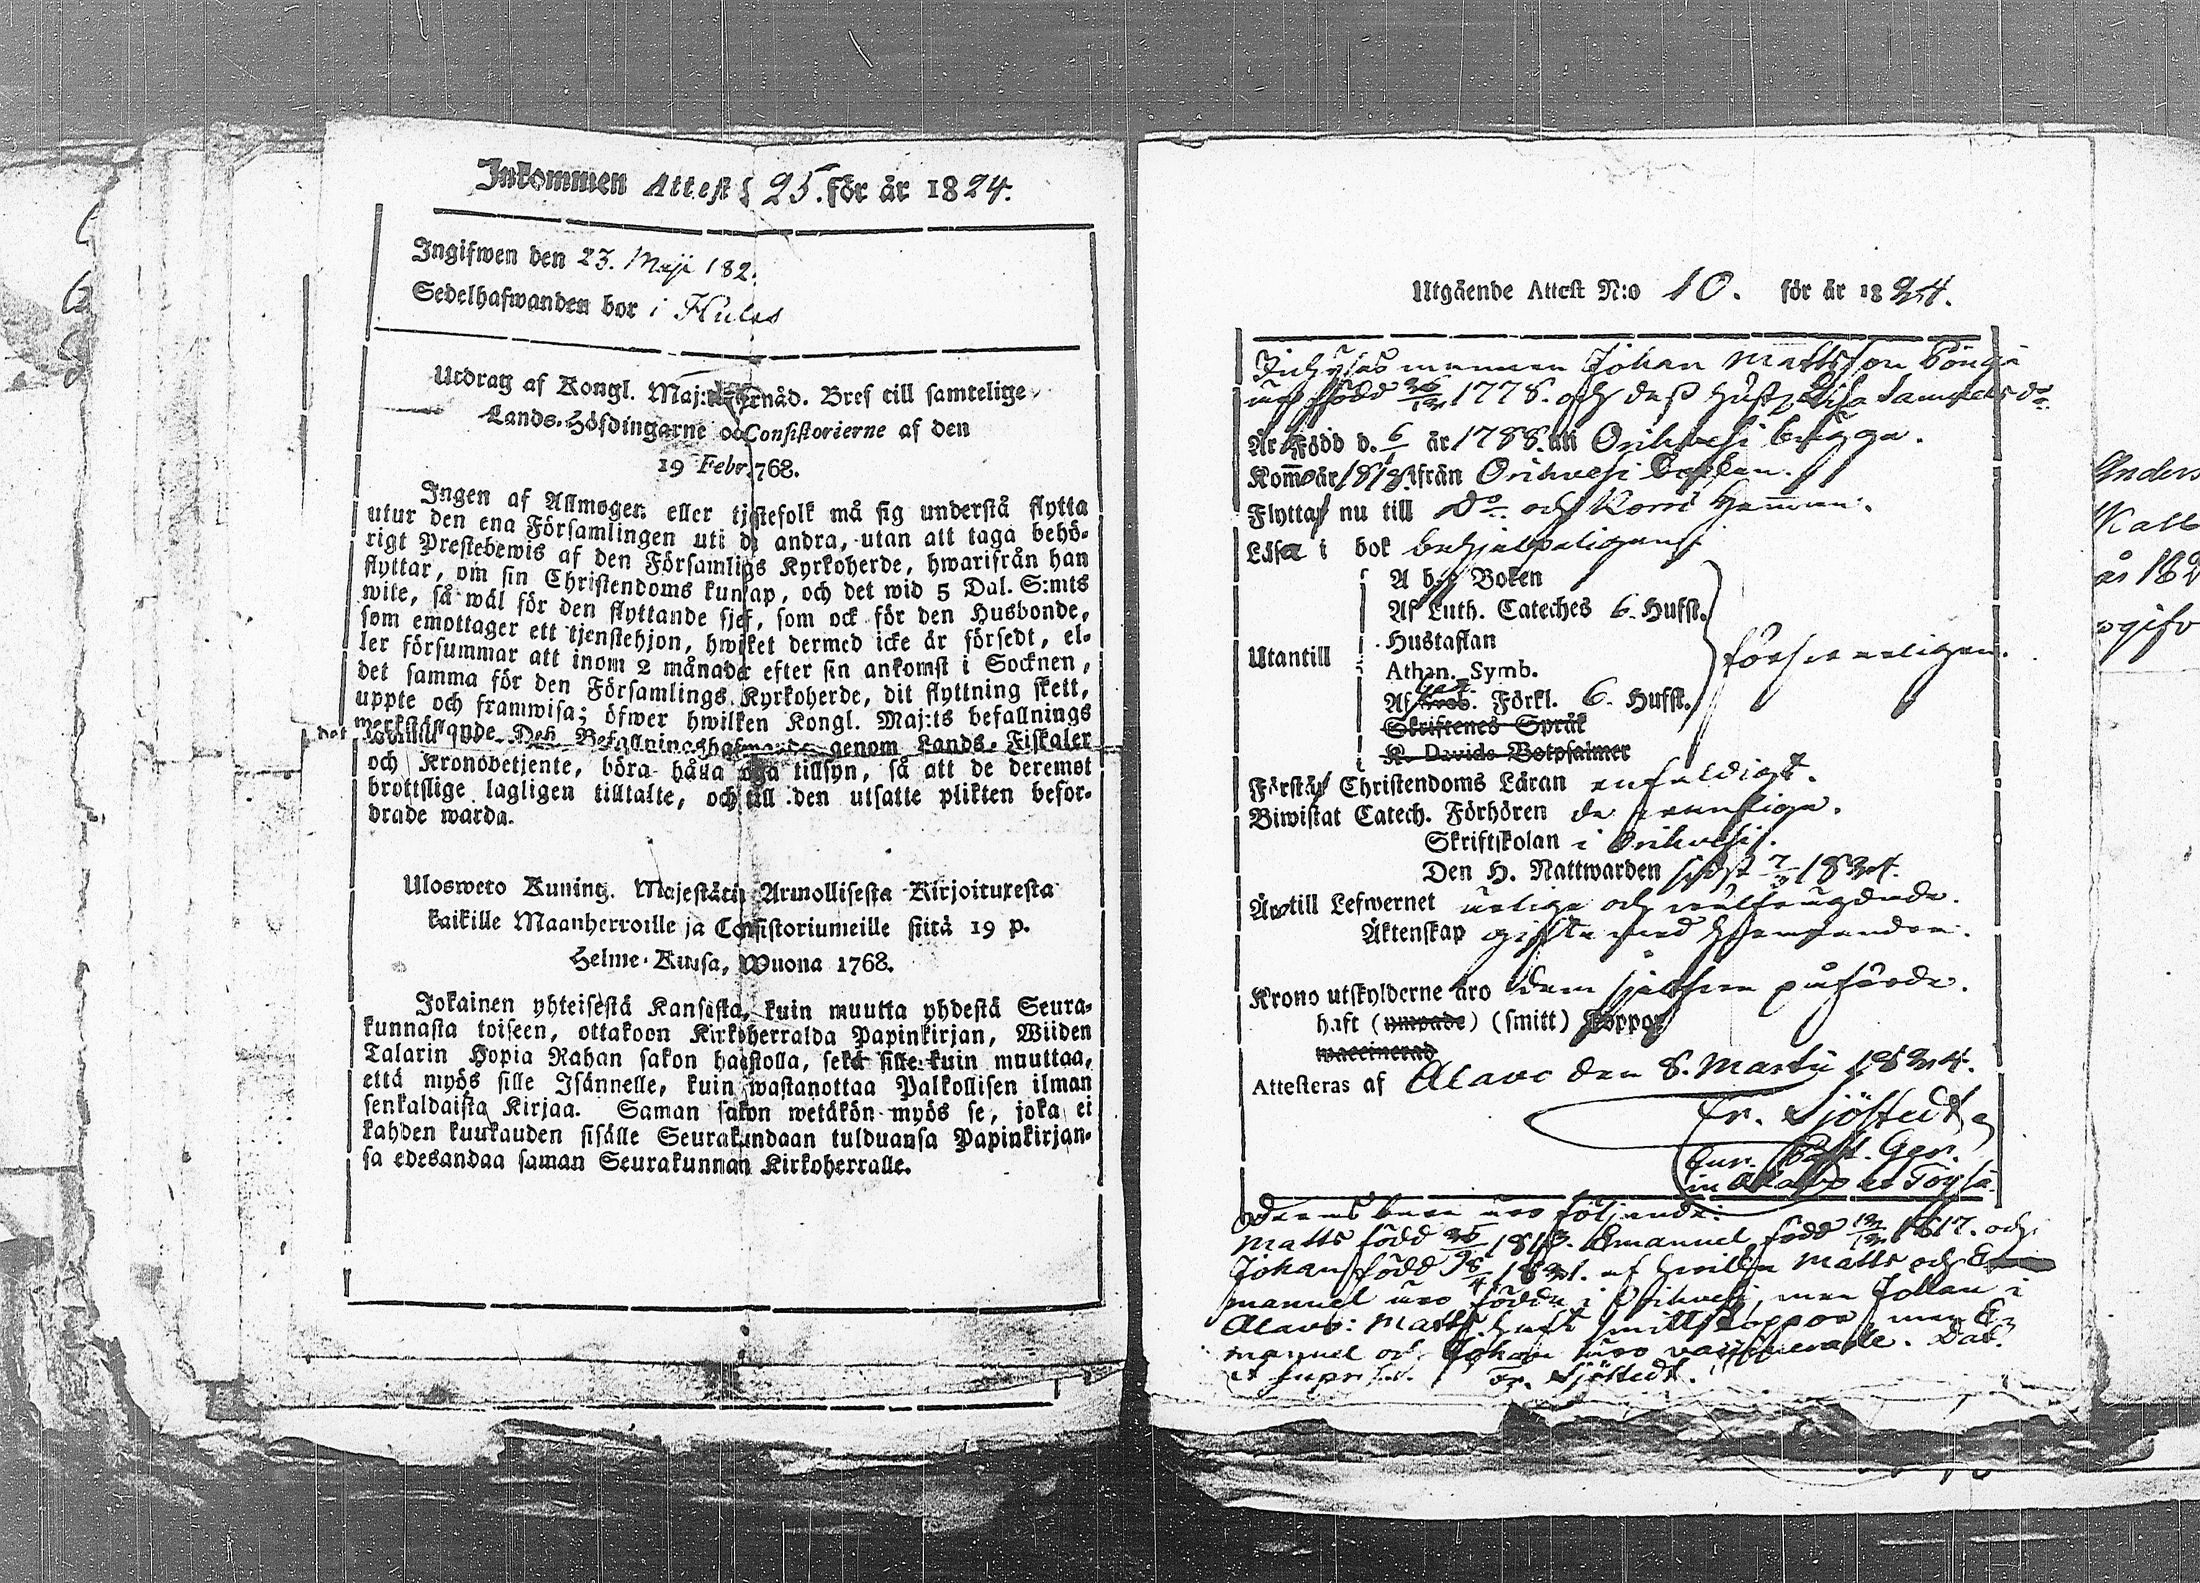 Inkommen Attest 25. för år 1824.
Ingifwen den 23. Maji 182.
Sedelhafwanden bor i
Utdrag af Kongl. Maj:ts nåd. Bref till samtelige
Lands-Höfdingarne och Consistorierne af den
19 Febr. 1768.
Ingen af Allmogen eller tjenstefolk må sig understå flytta
utur den ena Församlingen uti de andra, utan att taga behö-
rigt Prestebewis af den Församlings Kyrkoherde, hwarifrån han
flyttar, om sin Christendoms kunskap, och det wid 5 Dal. S:mts
wite, så wäl för den flyttande sjelf, som ock för den Husbonde,
som emottager ett tjenstehjon, hwilket dermed icke är försedt, el-
ler försummar att inom 2 månader efter sin ankomst i Socknen,
det samma för den Församlings Kyrkoherde, dit flyttning skett,
uppte och framwisa; öfwer hwilken Kongl. Maj:ts befallnings
werkställande Deß Befallningshafwande genom Lands-Fiskaler
och Kronobetjente, böra hålla noga tillsyn, så att de deremot
brottslige lagligen tilltalte, och till den utsatte plikten befor-
drade warda.
Ulosweto Kuning. Majestätin Armollisesta Kirjoituxesta
kaikille Maanherroille ja Consistoriumeille siitä 19 p.
Helme-Kuusa, Wuona 1768.
Jokainen yhteisestä Kansasta, kuin muutta yhdestä Seura-
kunnasta toiseen, ottakoon Kirkoherralda Papinkirjan, Wiiden
Talarin Hopia Rahan sakon haastolla, sekä sille kuin muuttaa,
että myös sille Isännelle, kuin wastanottaa Palkollisen ilman
senkaldaista Kirjaa. Saman sakon wetäkön myös se, joka ei
kahden kuukauden sisälle Seurakundaan tulduansa Papinkirjan-
sa edesandaa saman Seurakunnan Kirkoherralle.
Utgående Attest N:o 10. för år 1824.
Inhysesmannen Johan Mattsson
född 1778. och deß hust. Lisa Samuelsdr
Är Född d. 6 år 1788. uti Orihvesi
Kom år 1818 ifrån Orihvesi Socken.
Flytta nu till do och
Läsa i bok behjelpeligen
A b c Boken
Af Luth. Cateches 6. Hufst.
Hustaflan
Utantill
Athan. Symb.
försvarligen.
Af Förkl. 6. Hufst.
Skriftenes Språk
K. Davids Botpsalmer
Förstå Christendoms Läran enfaldigt.
Biwistat Catech. Förhören de
Skriftskolan i Orihvesi.
Den H. Nattwarden sidst 1824.
Äro till Lefwernet ärliga och välfrägdade.
Äktenskap gifta med hvarandra.
Krono utskylderne äro dem sjelfva påförde.
haft (ympade) (smitt) koppor
waccinerad
Attesteras af Alavo den 8. Martii 1824.
Er. Sjöstedt
Cur. Past. Ger.
in Alavo et Töysä
Deras barn äro följande:
Matts född 1813. Emanuel född 1817. och
Johan född 1821. af hvilka Matts och E
manuel äro födda i Orihvesi, men Johan i
Alavo: Matts haft smittkoppor, men E
manuel och Johan äro vaccinerade. Dat.
ut supra Er. Sjöstedt.